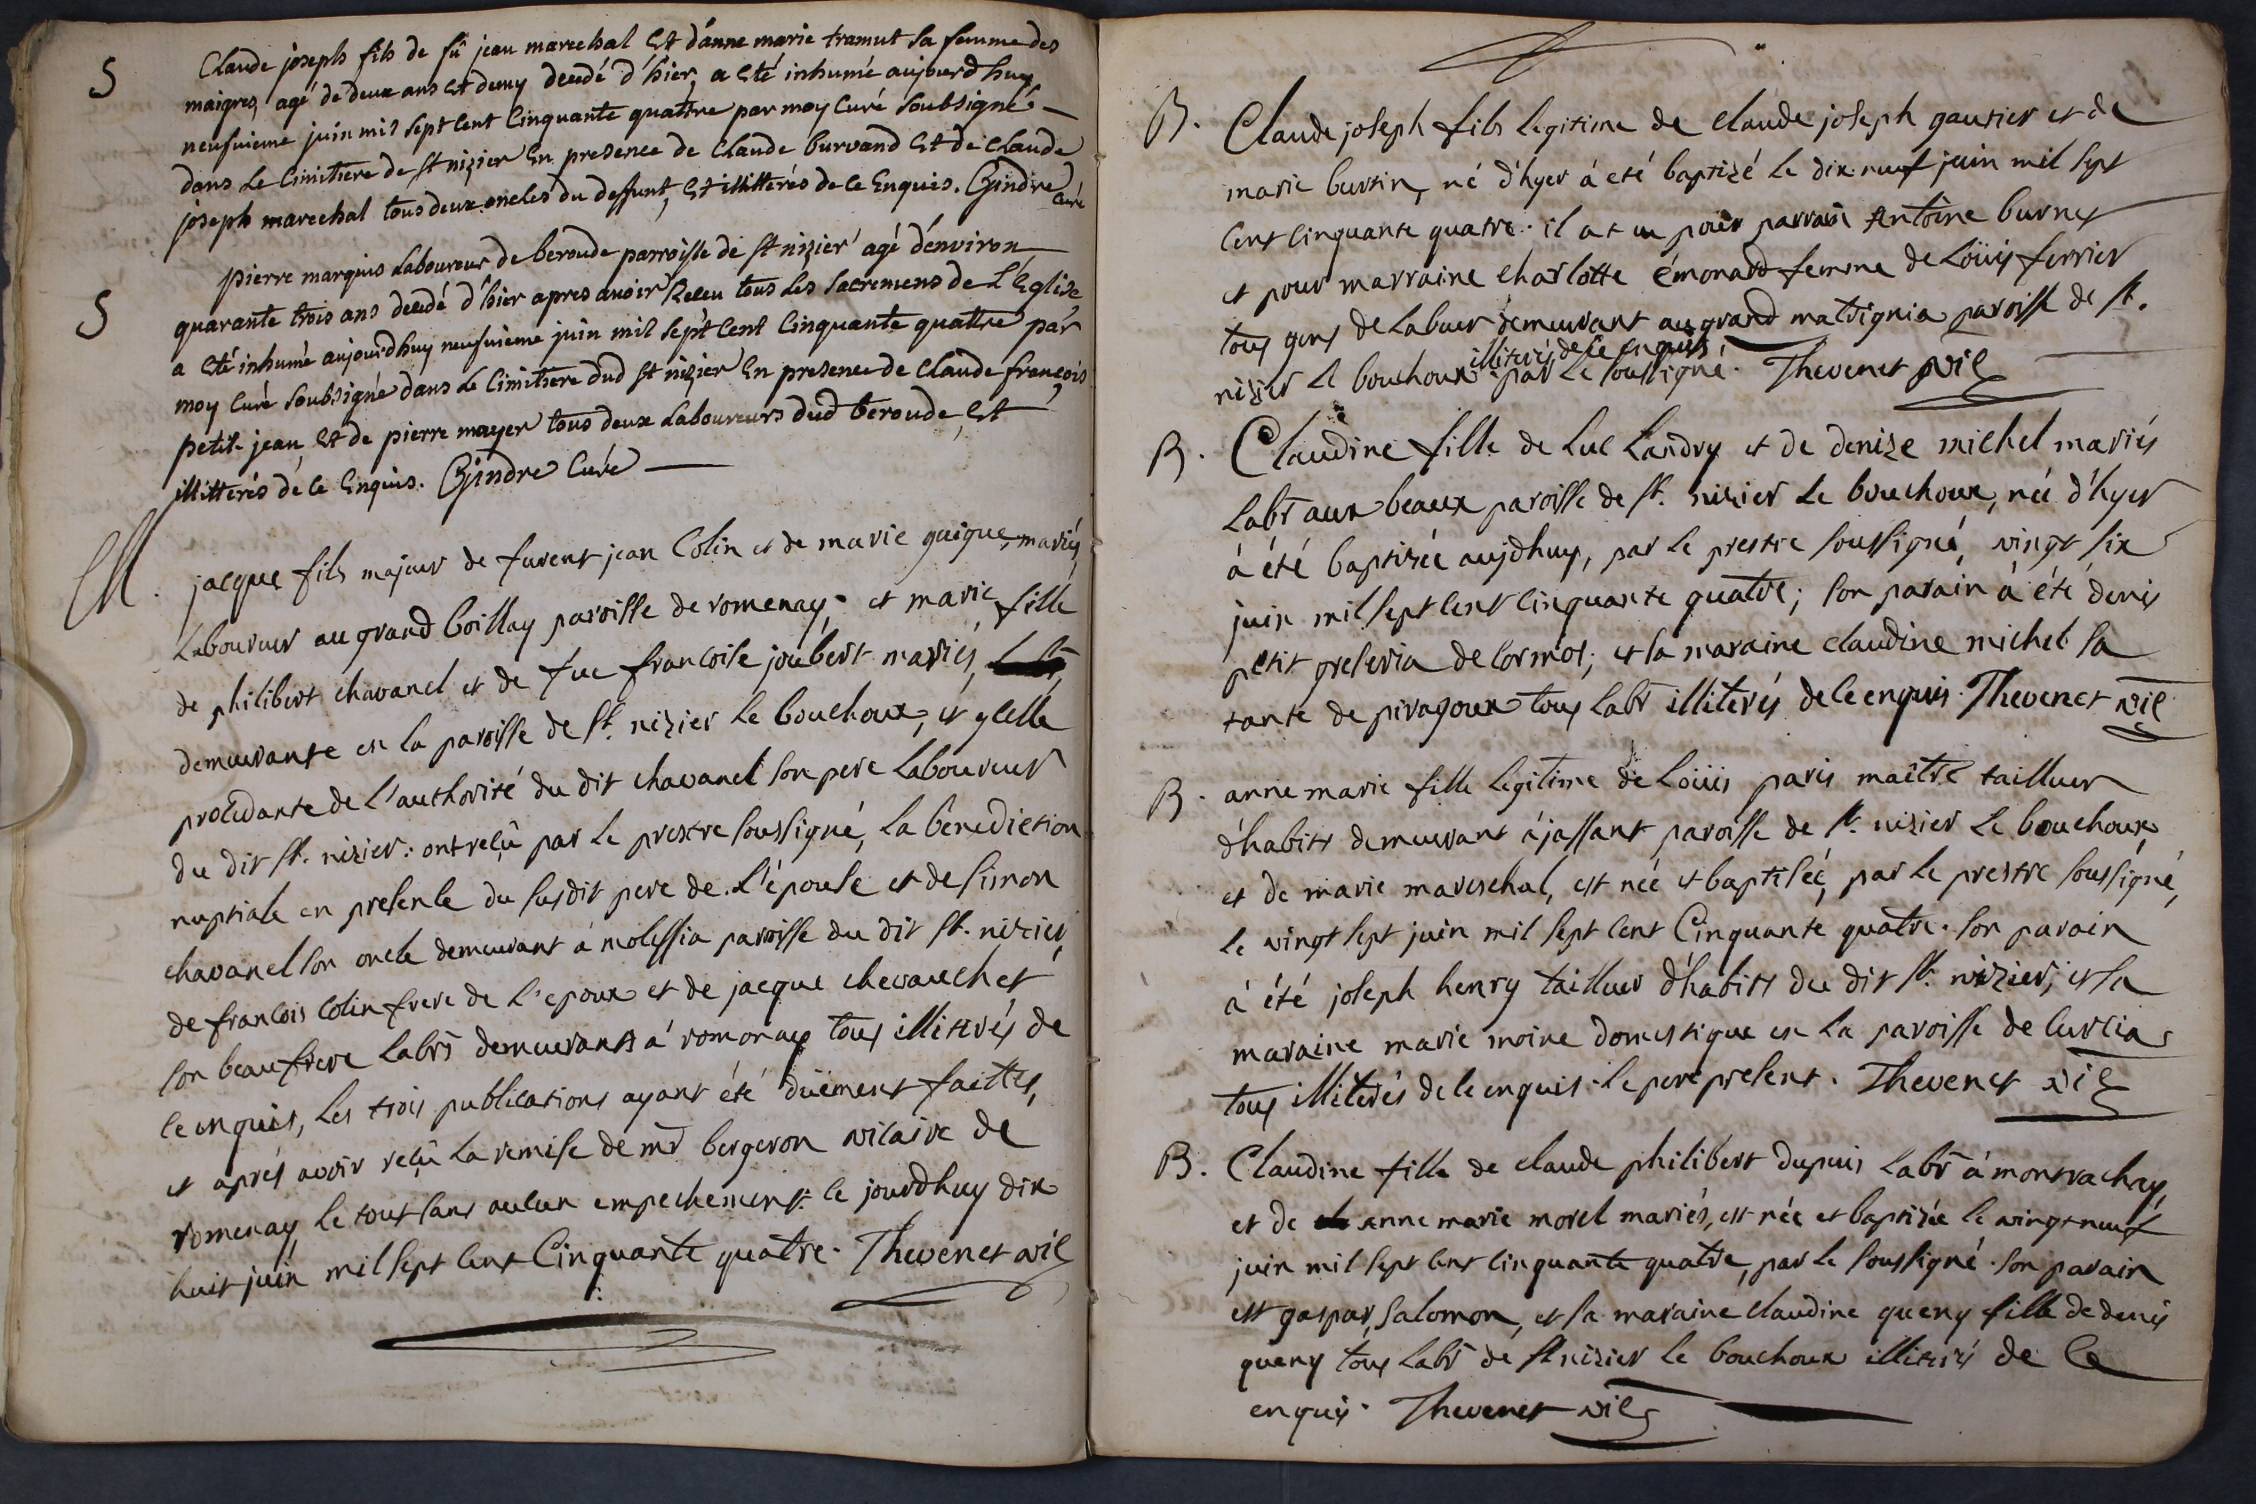 S
Claude joseph fils de fû jean marechal Et d'anne marie tramut sa femme des
maigres, agé de deux ans Et demy decedé d'hier, a Eté inhumé aujourdhuy
neufvieme juin mil sept cent Cinquante quattre par moy Curé soubsigné
dans Le Cimitiere de st nizier En presence de Claude burvand Et de Claude
joseph marechal tous deux oncles du deffunt, Et illitterés de ce Enquis. Gindre Curé
S
pierre marquis Laboureur de beroude parroisse de st nizier agé d'environ
quarante trois ans decedé d'hier apres avoir Receu tous Les Sacremens de L'Eglise
a Eté inhumé aujourdhuy neufvieme juin mil sept cent Cinquante quattre par
moy Curé soubsigné dans Le Cimitiere dud st nizier En presence de Claude francois
petit jean Et de pierre mayer tous deux Laboureurs dud beroude, Et
illitterés de ce Enquis. Gindre Curé
M.
jacque fils majeur de furent jean Colin et de marie guigue, mariés,
Laboureur au grand boillay paroisse de romenay; et marie fille
de philibert chavanel et de fue francoise joubert mariés,
demeurante en la paroisse de st. nizier le bouchoux, et ycelle
procedante de L'authorité du dit chavanel son pere Laboureur
du dit st. nizier: ont reçû par le prestre soussigné, La benediction
nuptiale en presence du susdit pere de L'épouse et de simon
chavanel son oncle demeurant à molissia paroisse du dit st. nizier,
de francois Colin frere de L'epoux et de jacque chevauchet
son beaufrere Labrs demeurants à romonay tous illiterés de
ce enquis, Les trois publications ayant été düement faittes,
et aprés avoir reçû La remise de mr bergeron vicaire de
romenay, le tout sans aucun empechement: ce jourdhuy dix
huit juin mil sept cent Cinquante quatre. Thevenet vic
B.
Claude joseph fils legitime de claude joseph gautier et de
marie burtin, né d'hyer à eté baptizé le dix neuf juin mil sept
cent cinquante quatre. il at eu pour parrain Antoine burnet
et pour marraine charlotte émonard femme de Loüis ferrier
tous gens de Labeur demeurant au grand matignia paroisse de st.
illiterés de ce enquis
nizier le bouchoux par le soussigné. Thevenet vic
B.
Claudine fille de Luc Landry et de denize michel mariés
Labr aux beaux paroisse de st. nizier le bouchoux, née d'hyer
à été baptizée aujdhuy, par le prestre soussigné, vingt six
juin mil sept cent cinquante quatre; son parain à été denis
petit greleria de Cormos; et sa maraine claudine michel sa
tante de piragoux tous Labr illiterés de ce enquis. Thevenet vic
B.
anne marie fille legitime de Loüis paris maître tailleur
d'habits demeurant à jassant paroisse de st. nizier le bouchoux,
et de marie mareschal, est née et baptisée, par le prestre soussigné,
le vingt sept juin mil sept cent Cinquante quatre. son parain
à été joseph henry tailleur d'habits du dit st. nizier; et sa
maraine marie moine domestique en la paroisse de curcia
tous illiterés de ce enquis. le pere present. Thevenet vic
B.
Claudine fille de claude philibert dupuis Labr à montrachay,
et de anne marie morel mariés, est née et baptizée le vingt neuf
juin mil sept cent cinquante quatre, par le soussigné. son parain
est gaspar, salomon, et sa maraine claudine queny fille de denis
queny tous Labr de st nizier le bouchoux illiterés de ce
enquis. Thevenet vic